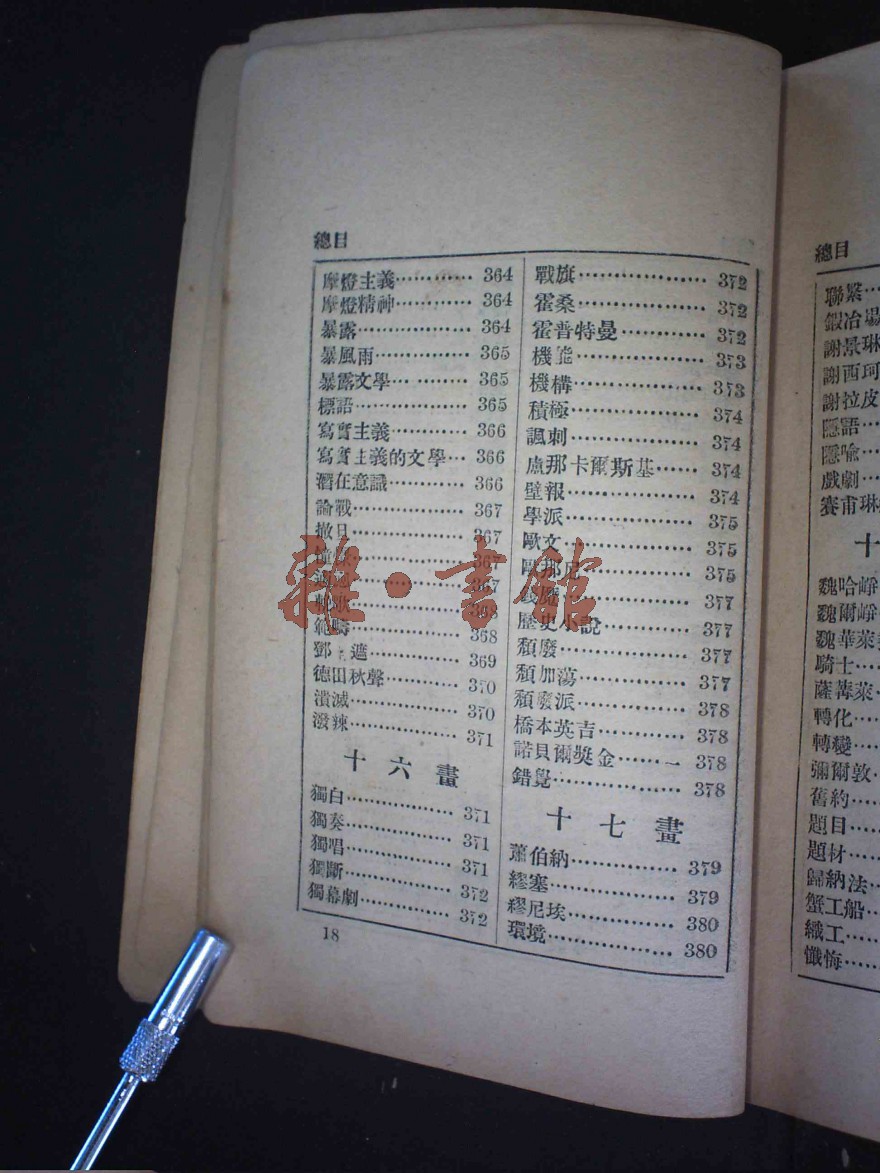 總目
摩燈主義………… 364
摩燈精神………… 364
暴露……………… 364
暴風雨…………… 365
暴露文學… ……… 365
標語……………… 365
寫實主義………… 366
寫實主義的文學… 366
潛在意識………… 366
論戰……………… 367
撤… 367
367
367
輓歌 368
範疇 368
鄧 遮…………… 369
德田秋聲………… 370
潰滅……………… 370
潑辣……………… 371
十六畫
獨白……………… 371
獨奏……………… 371
獨唱……………… 371
獨斷……………… 372
獨幕劇…………… 372
18
戰旗……………… 372
霍桑……………… 372
霍普特曼………… 372
機能……………… 373
機構……………… 373
積極……………… 374
諷刺……………… 374
盧那卡爾斯基…… 374
壁報……………… 374
學派……………… 375
歐文……………… 375
歐那尼 375
踐履 377
歷史小說………… 377
頹廢……………… 377
頹加蕩…………… 377
頹廢派…………… 378
橋本英吉………… 378
諾貝爾獎金……一 378
錯覺……………… 378
十七畫
蕭伯納…………… 379
繆塞……………… 379
繆尼埃…………… 380
環境……………… 380
雜·書館
總目
聯繫…
鍛冶場
謝景琳
謝西珂
謝拉皮
隱語…
隱喻…
戲劇…
賽甫琳
十
魏哈崢
魏爾崢
魏華萊
騎士…
薩芾萊
轉化…
轉變…
彌爾敦
舊約…
題目…
題材…
歸納法
蟹工船
織工…
懺悔…